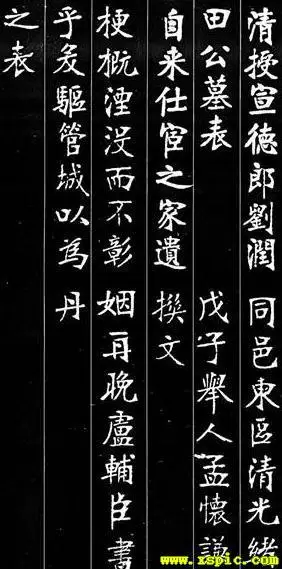 清授宣德郎劉潤
田公墓表
自来仕宦之家遺
梗概湮没而不彰
乎爰驅管城以為
之表
同邑東區清光緒
戊子舉人孟懷
撰文
姻再晚盧輔臣書
丹
www.xspic.com